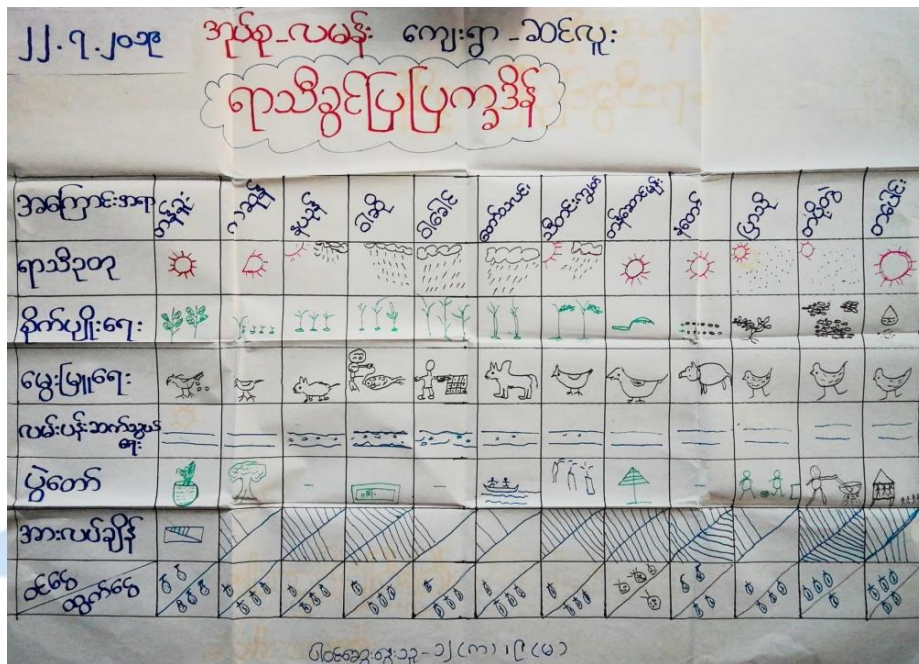 ၂၂.၇.၂၀၁၉ အုပ်စု-လမန်း ကျေးရွာ-ဆင်လူး
ရာသီခွင်ပြပြက္ခဒိန်
အကြောင်းအရာ တန်ခူး ကဆုန် နယုန် ဝါဆို ဝါခေါင် တော်သလင်း သီတင်းကျွတ် တန်ဆောင်မုန်း နံတော် ပြာသို တပို့တွဲ တပေါင်း
ရာသီဥတု
စိုက်ပျိုးရေး
မွေးမြူရေး
လမ်းပန်းဆက်သွယ်
ရေး
ပွဲတော်
အားလပ်ချိန်
ဝင်ငွေ
ထွက်ငွေ